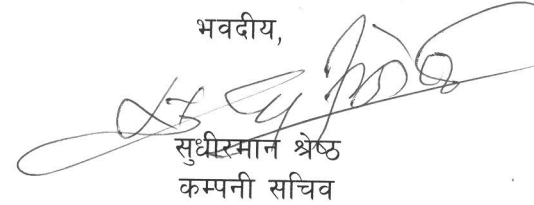 भवदीय,
सुधीरमान श्रेष्ठ
कम्पनी सचिव